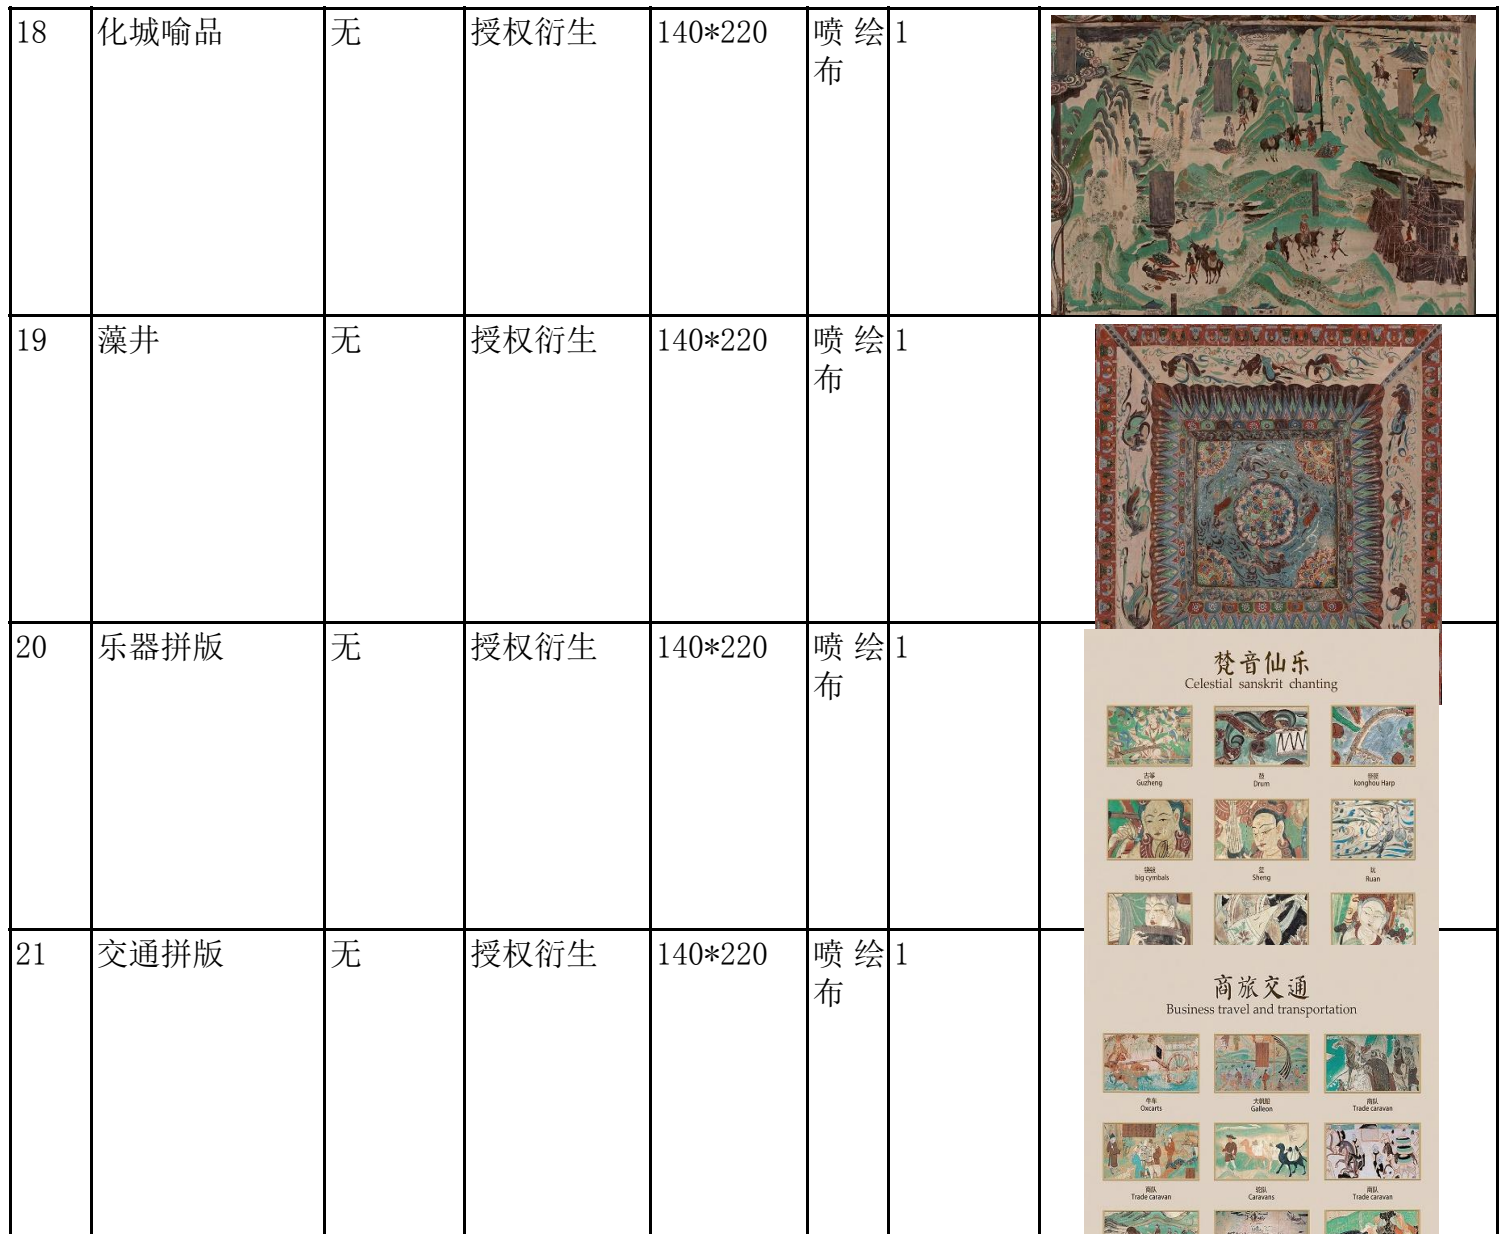 18 化城喻品 无 授权衍生 140*220 喷绘 1
布
19 藻井 无 授权衍生 140*220 喷绘 1
布
20 乐器拼版 无 授权衍生 140*220 喷绘 1
布
梵音仙乐
Celestial sanskrit chanting
古筝 鼓 箜篌
Guzheng Drum konghou Harp
big cymbals Sheng Ruan
21 交通拼版 无 授权衍生 140*220 喷绘 1
布
商旅交通
Business travel and transportation
牛车 大帆船 商队
Oxcarts Galleon Trade caravan
商队 驼队 商队
Trade caravan Caravans Trade caravan